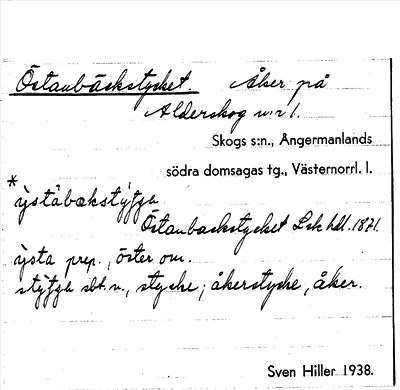 Östanbäckstycket. Åker på
Alderskog nr 1.
Skogs s:n., Ångermanlands
södra domsagas tg., Västernorrl. l.
*
Östanbackstycket Lsk hdl. 1871.
prep., öster om.
sbt. n., stycke; åkerstycke, åker.
Sven Hiller 1938.